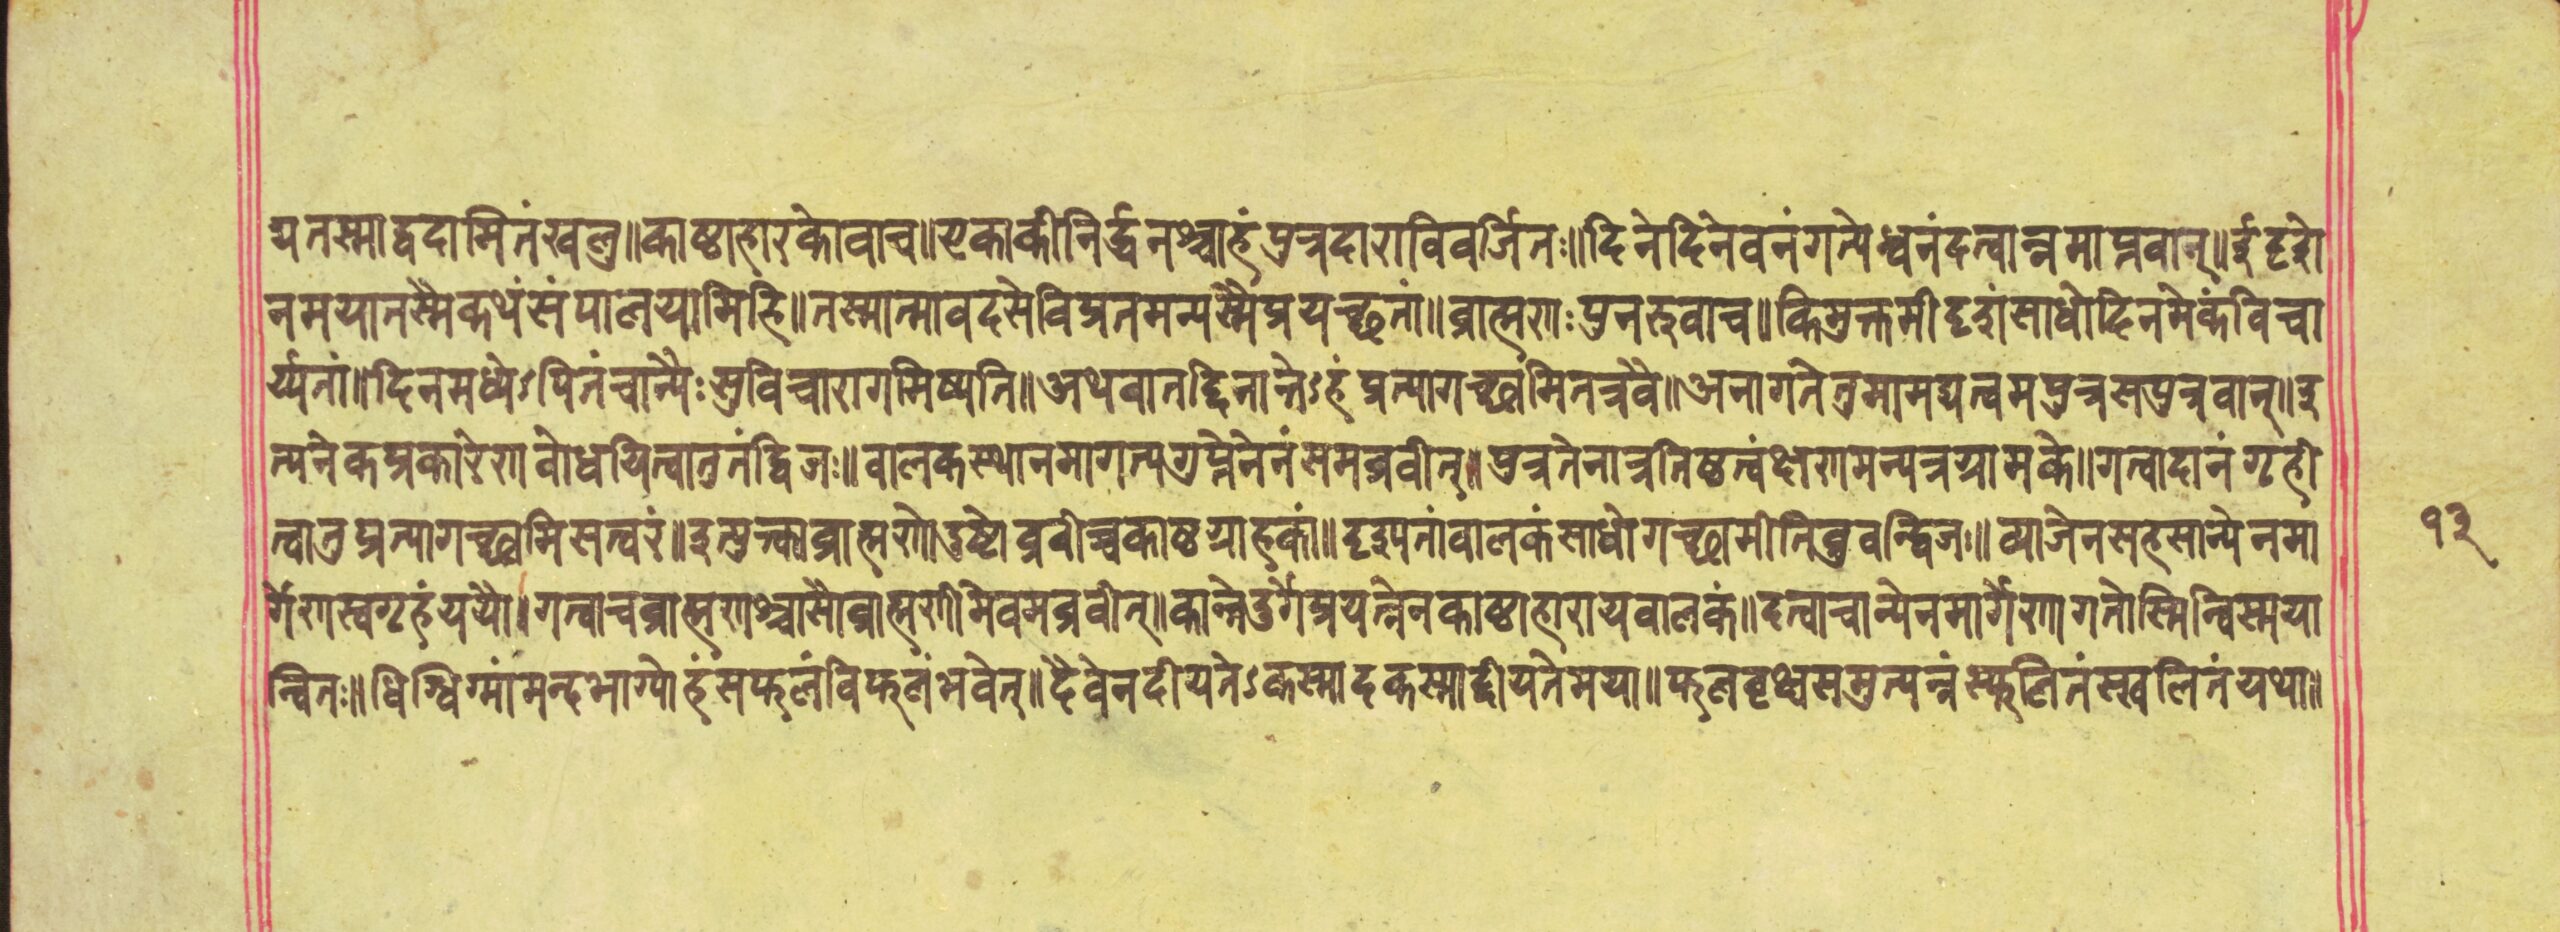 द्य तस्माद्वदामि तं खलु॥ काष्ठाहारकोवाच॥ एकाकी निर्द्धनश्चाहं पुत्रदाराविवर्जितः॥ दिने दिने वनं गत्येध्वनं दत्वान्नमाप्नवान्॥ ईदृशे
न मया तस्मै कथं संपालयामि हि॥ तस्मात्मावदसे विप्र तमन्यस्मै प्रयच्छतां॥ ब्राह्मणः पुनरुवाच॥ किमुक्तमीदृशं साधो दिनमेकं विचा
र्य्यतां॥ दिनमध्येऽपि तं चान्यैः सुविचारागमिष्यति॥ अथवा तद्दिनान्तेऽहं प्रत्यागच्छामि तत्र वै॥ अनागते तु मामद्य त्वमपुत्र सपुत्रवान्॥ इ
त्यनेकप्रकारेण बोधयित्वा तु तं द्विजः॥ बालकस्थानमागत्य गुप्तेनेनं समब्रवीत्॥ पुत्र तेनात्र तिष्ठ त्वं क्षणमन्यत्र ग्रामके॥ गत्वा दानं गृही
त्वा तु प्रत्यागच्छामि सत्वरं॥ इत्युक्त्वा ब्राह्मणो दुष्टो ब्रवीच्च काष्ठग्राहकं॥ दृश्यतां बालकं साधो गच्छामीति ब्रुवन्द्विजः॥ व्याजेन सहसान्येन मा
र्गेण स्वगृहं ययौ॥ गत्वा च ब्राह्मणश्चासौ ब्राह्मणीमेवमब्रवीत्॥ कान्ते दुर्गे प्रयत्नेन काष्ठाहाराय बालकं॥ दत्वा चान्येन मार्गेणागतोस्मिन्विस्मया
न्वितः॥ धिग्धिग्मां मन्दभाग्योहं सफलं विफलं भवेत्॥ दैवेन दीयतेऽकस्मादकस्माद्दीयते मया॥ फलवृथ्य समुत्पन्नं स्फलितं स्खलितं यथा॥
१३